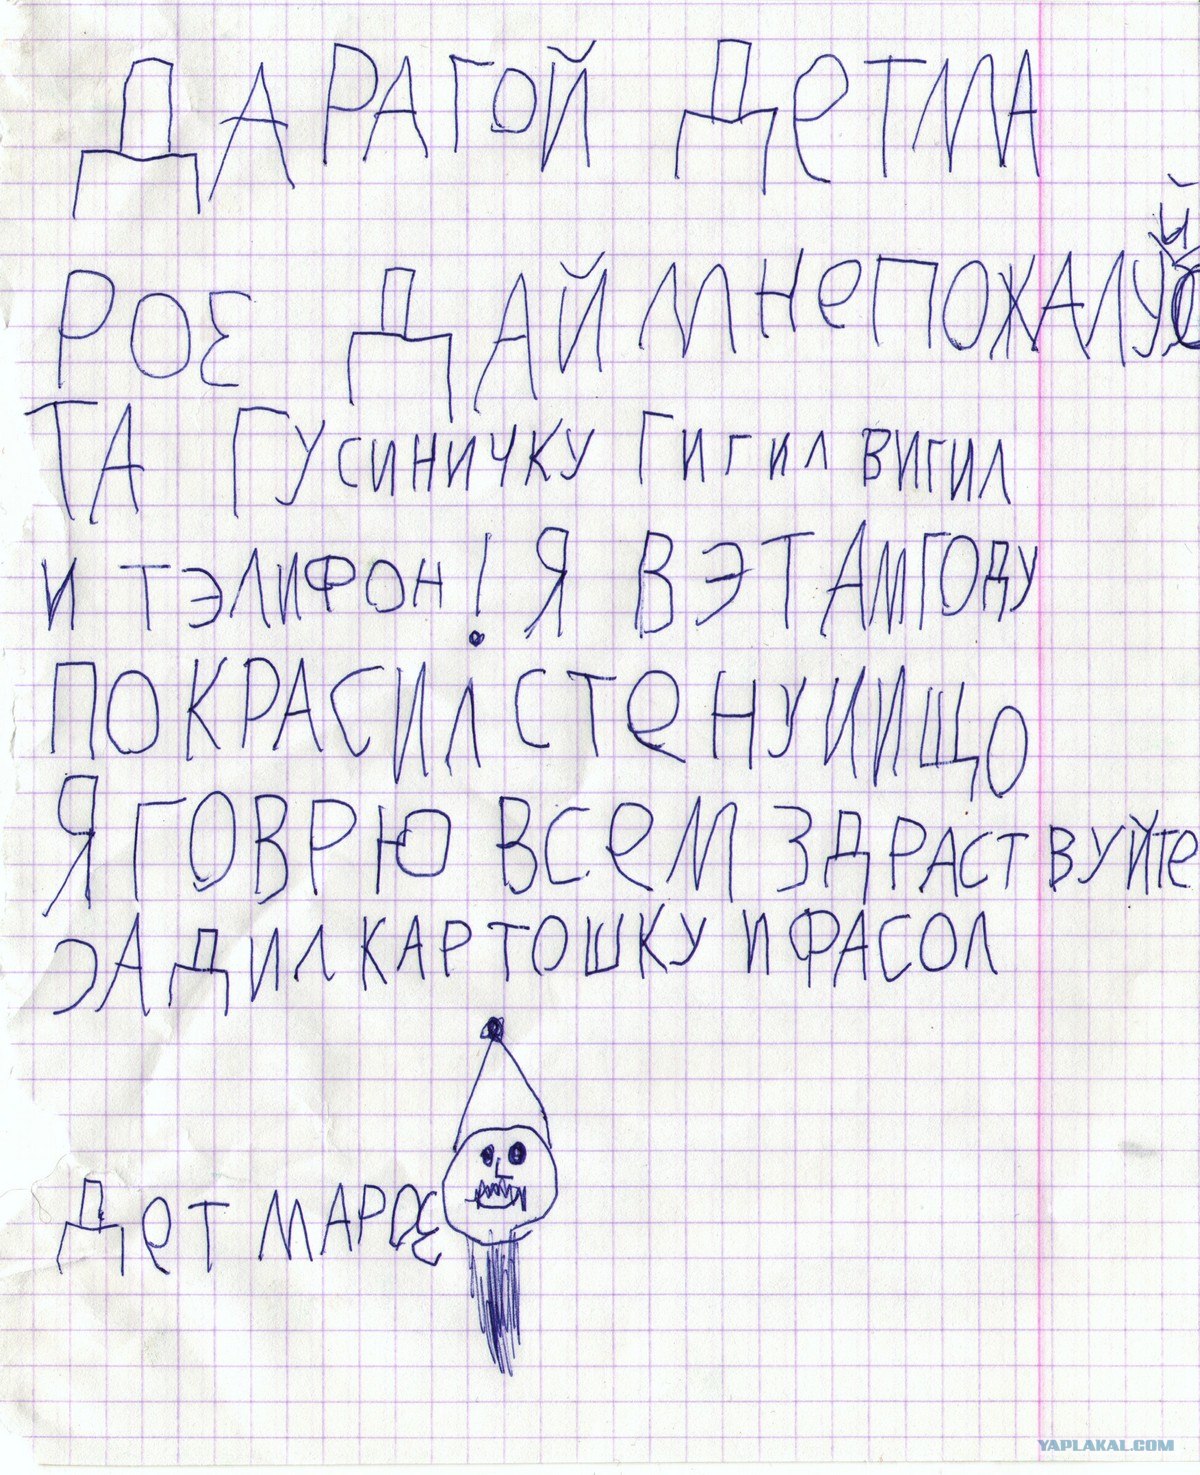 ДАРАГОЙ ДЕТМА
РОЕ ДАЙ МНЕПОЖАЛУЙ
ТА ГУСИНИЧКУ ГИГИЛ ВИГИЛ
И ТЭЛИФОН! Я В ЭТАМГОДУ
ПОКРАСИЛ СТЕНУ И ИЩО
Я ГОВРЮ ВСЕМ ЗДРАСТВУЙТЕ
ЭАДИЛ КАРТОШКУ И ФАСОЛ
ДЕТ МАРОЕ
YAPLAKAL.COM